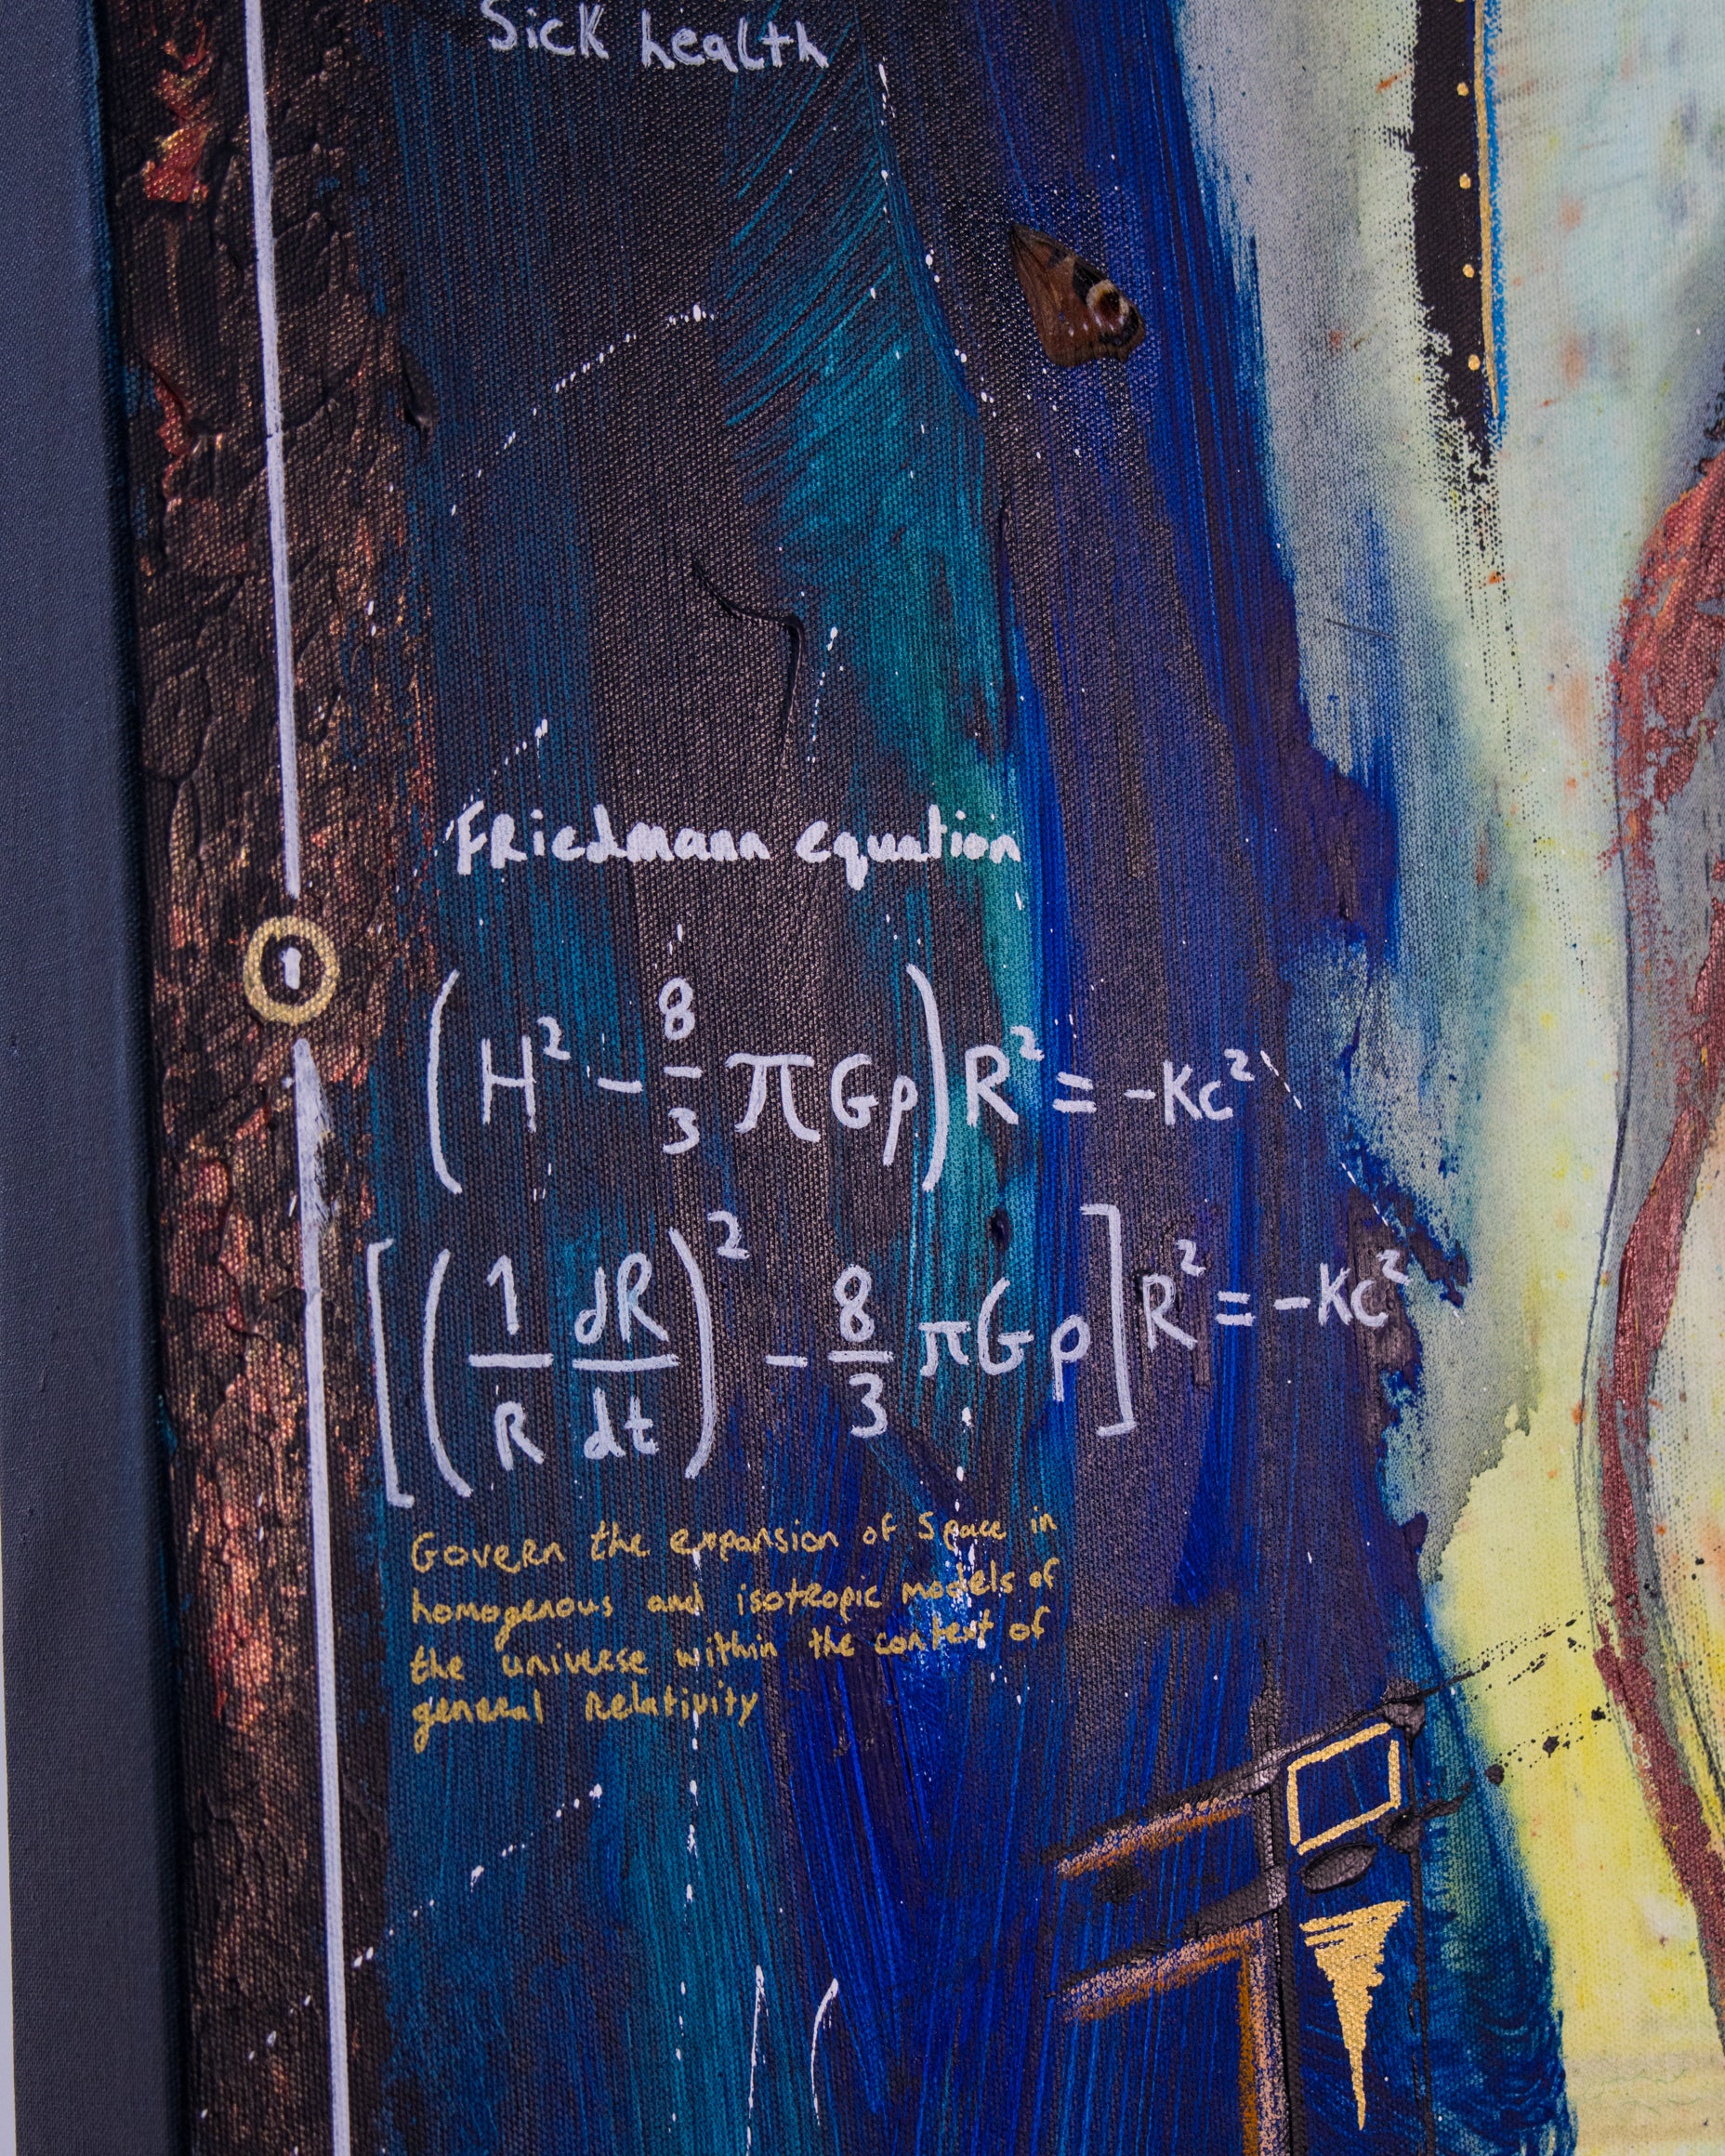 Sick health
Friedmann equation
(H² - 8/3 πGρ)R² = -Kc²
[(1/R dR/dt)² - 8/3 πGρ]R² = -Kc²
Govern the expansion of Space in
homogenous and isotropic models of
the universe within the context of
general relativity